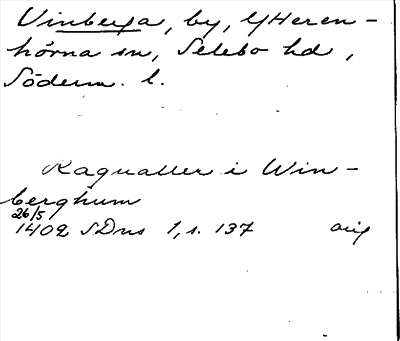 Vinberga, by, Ytteren-
hörna sn, Selebo hd,
Söderm. l.
Ragualler i Win-
berghum
26/5
1402 SDns 1, s. 137 orig